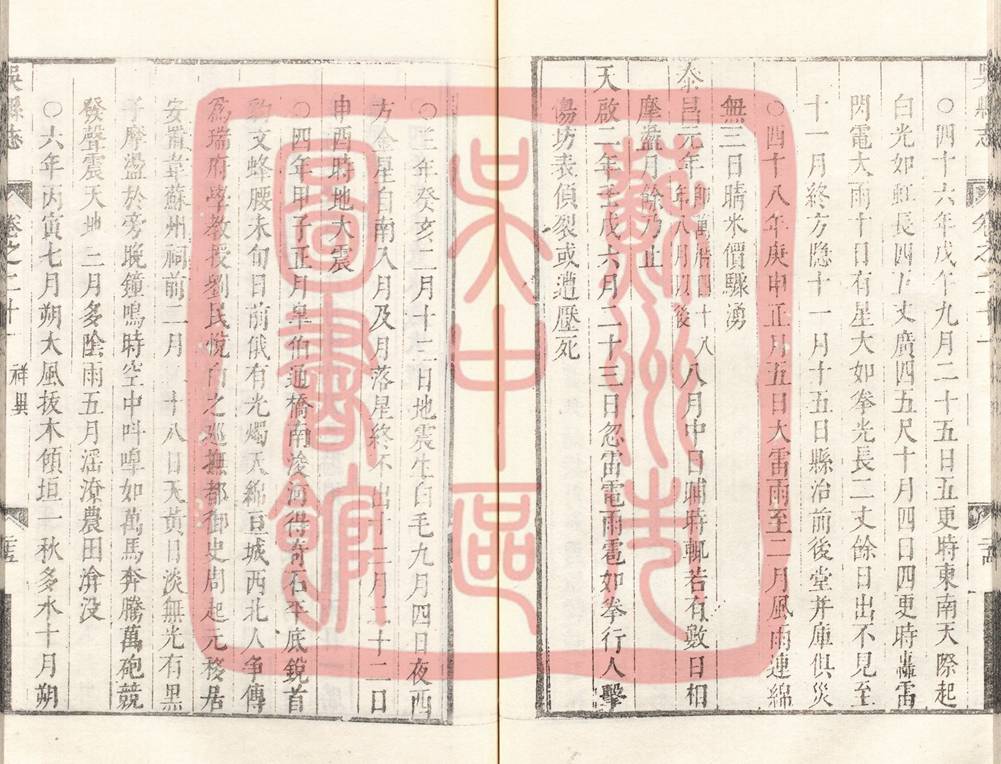 〇四十六年戊午九月二十五日五更時東南天際起
白光如虹長四五丈廣四五尺十月四日四更時轟雷
閃電大雨十日有星大如拳光長二丈餘日出不見至
十一月終方隱十一月十五日縣治前後堂并庫俱災
〇四十八年庚申正月五日大雷雨至二月風雨連綿
無三日晴米價驟湧
泰昌元年即萬曆四十八年八月以後八月中日晡時輒若有數日相
摩盪月餘乃止
天啟二年壬戌六月二十三日忽雷電雨雹如拳行人擊
傷坊表僨裂或遭壓死
〇三年癸亥二月十二日地震生白毛九月四日夜西
方金星自南入月及月落星終不出十二月二十二日
申酉時地大震
〇四年甲子正月皐伯通橋南浚河得奇石平底銳首
豹文蜂腰未旬日前俄有光燭天綿亘城西北人爭傳
爲瑞府學教授劉民悅白之巡撫都御史周起元移居
安置韋蘇州祠前二月十八日天黃日淡無光有黑
子摩盪於旁晚鐘鳴時空中呌嘷如萬馬奔騰萬砲競
發聲震天地三月多陰雨五月滛潦農田渰沒
〇六年丙寅七月朔大風拔木傾垣一秋多水十月朔
吳縣志
卷之二十一
祥異
吳縣志
卷之二十一
蘇州市
吳中區
圖書館